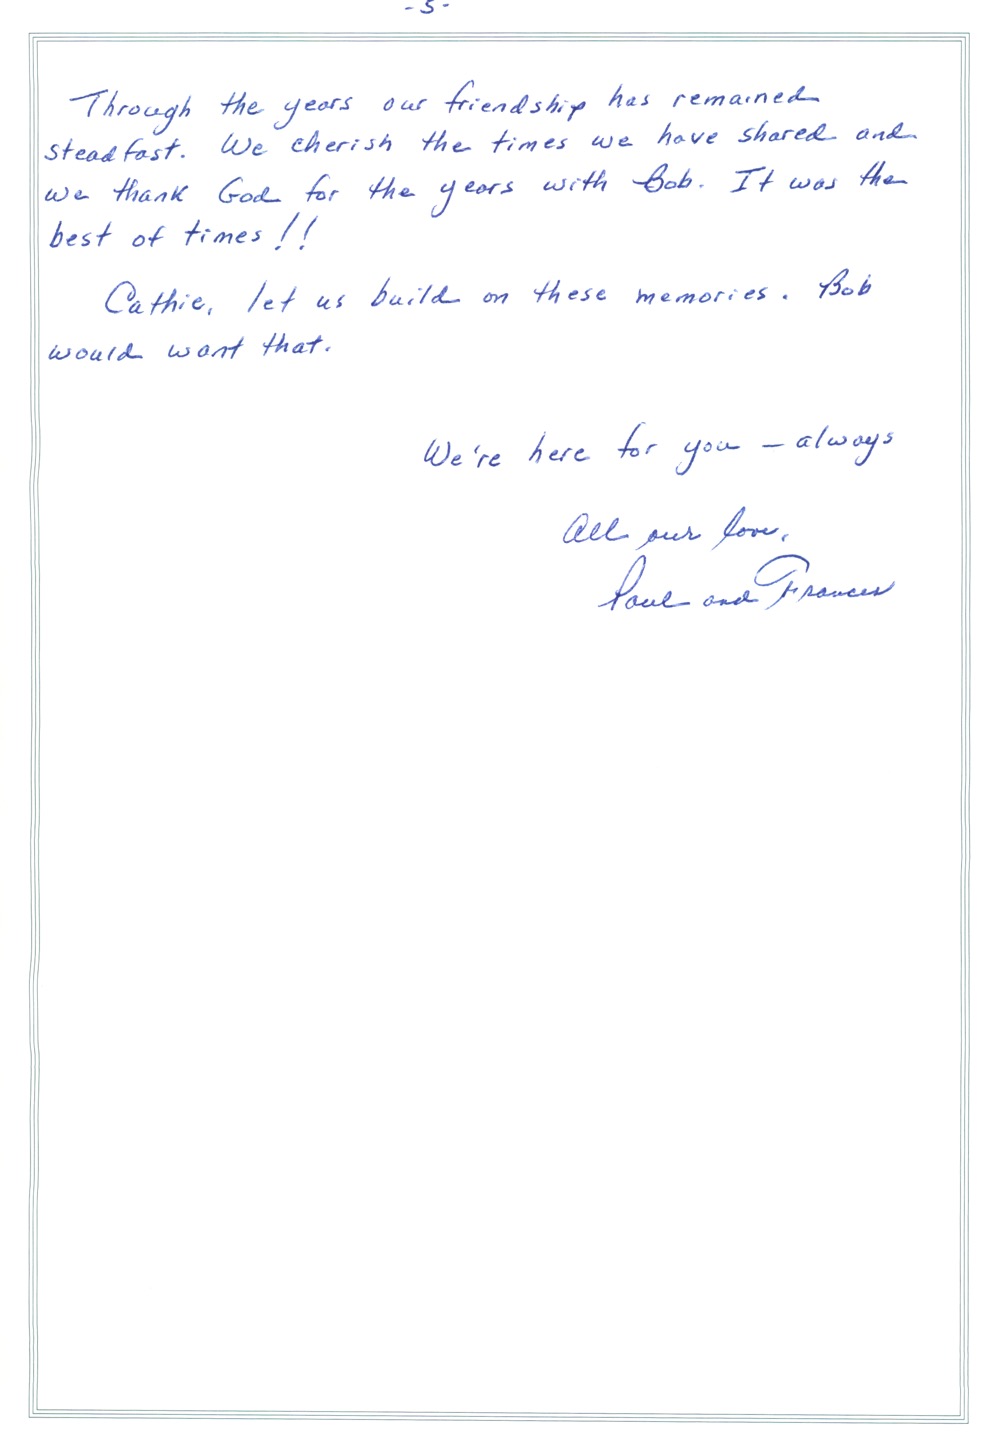 - 5 -
Through the years our friendship has remained
steadfast. We cherish the times we have shared and
we thank God for the years with Bob. It was the
best of times!!
Cathie, let us build on these memories. Bob
would want that.
We're here for you – always
All our love,
Paul and Frances